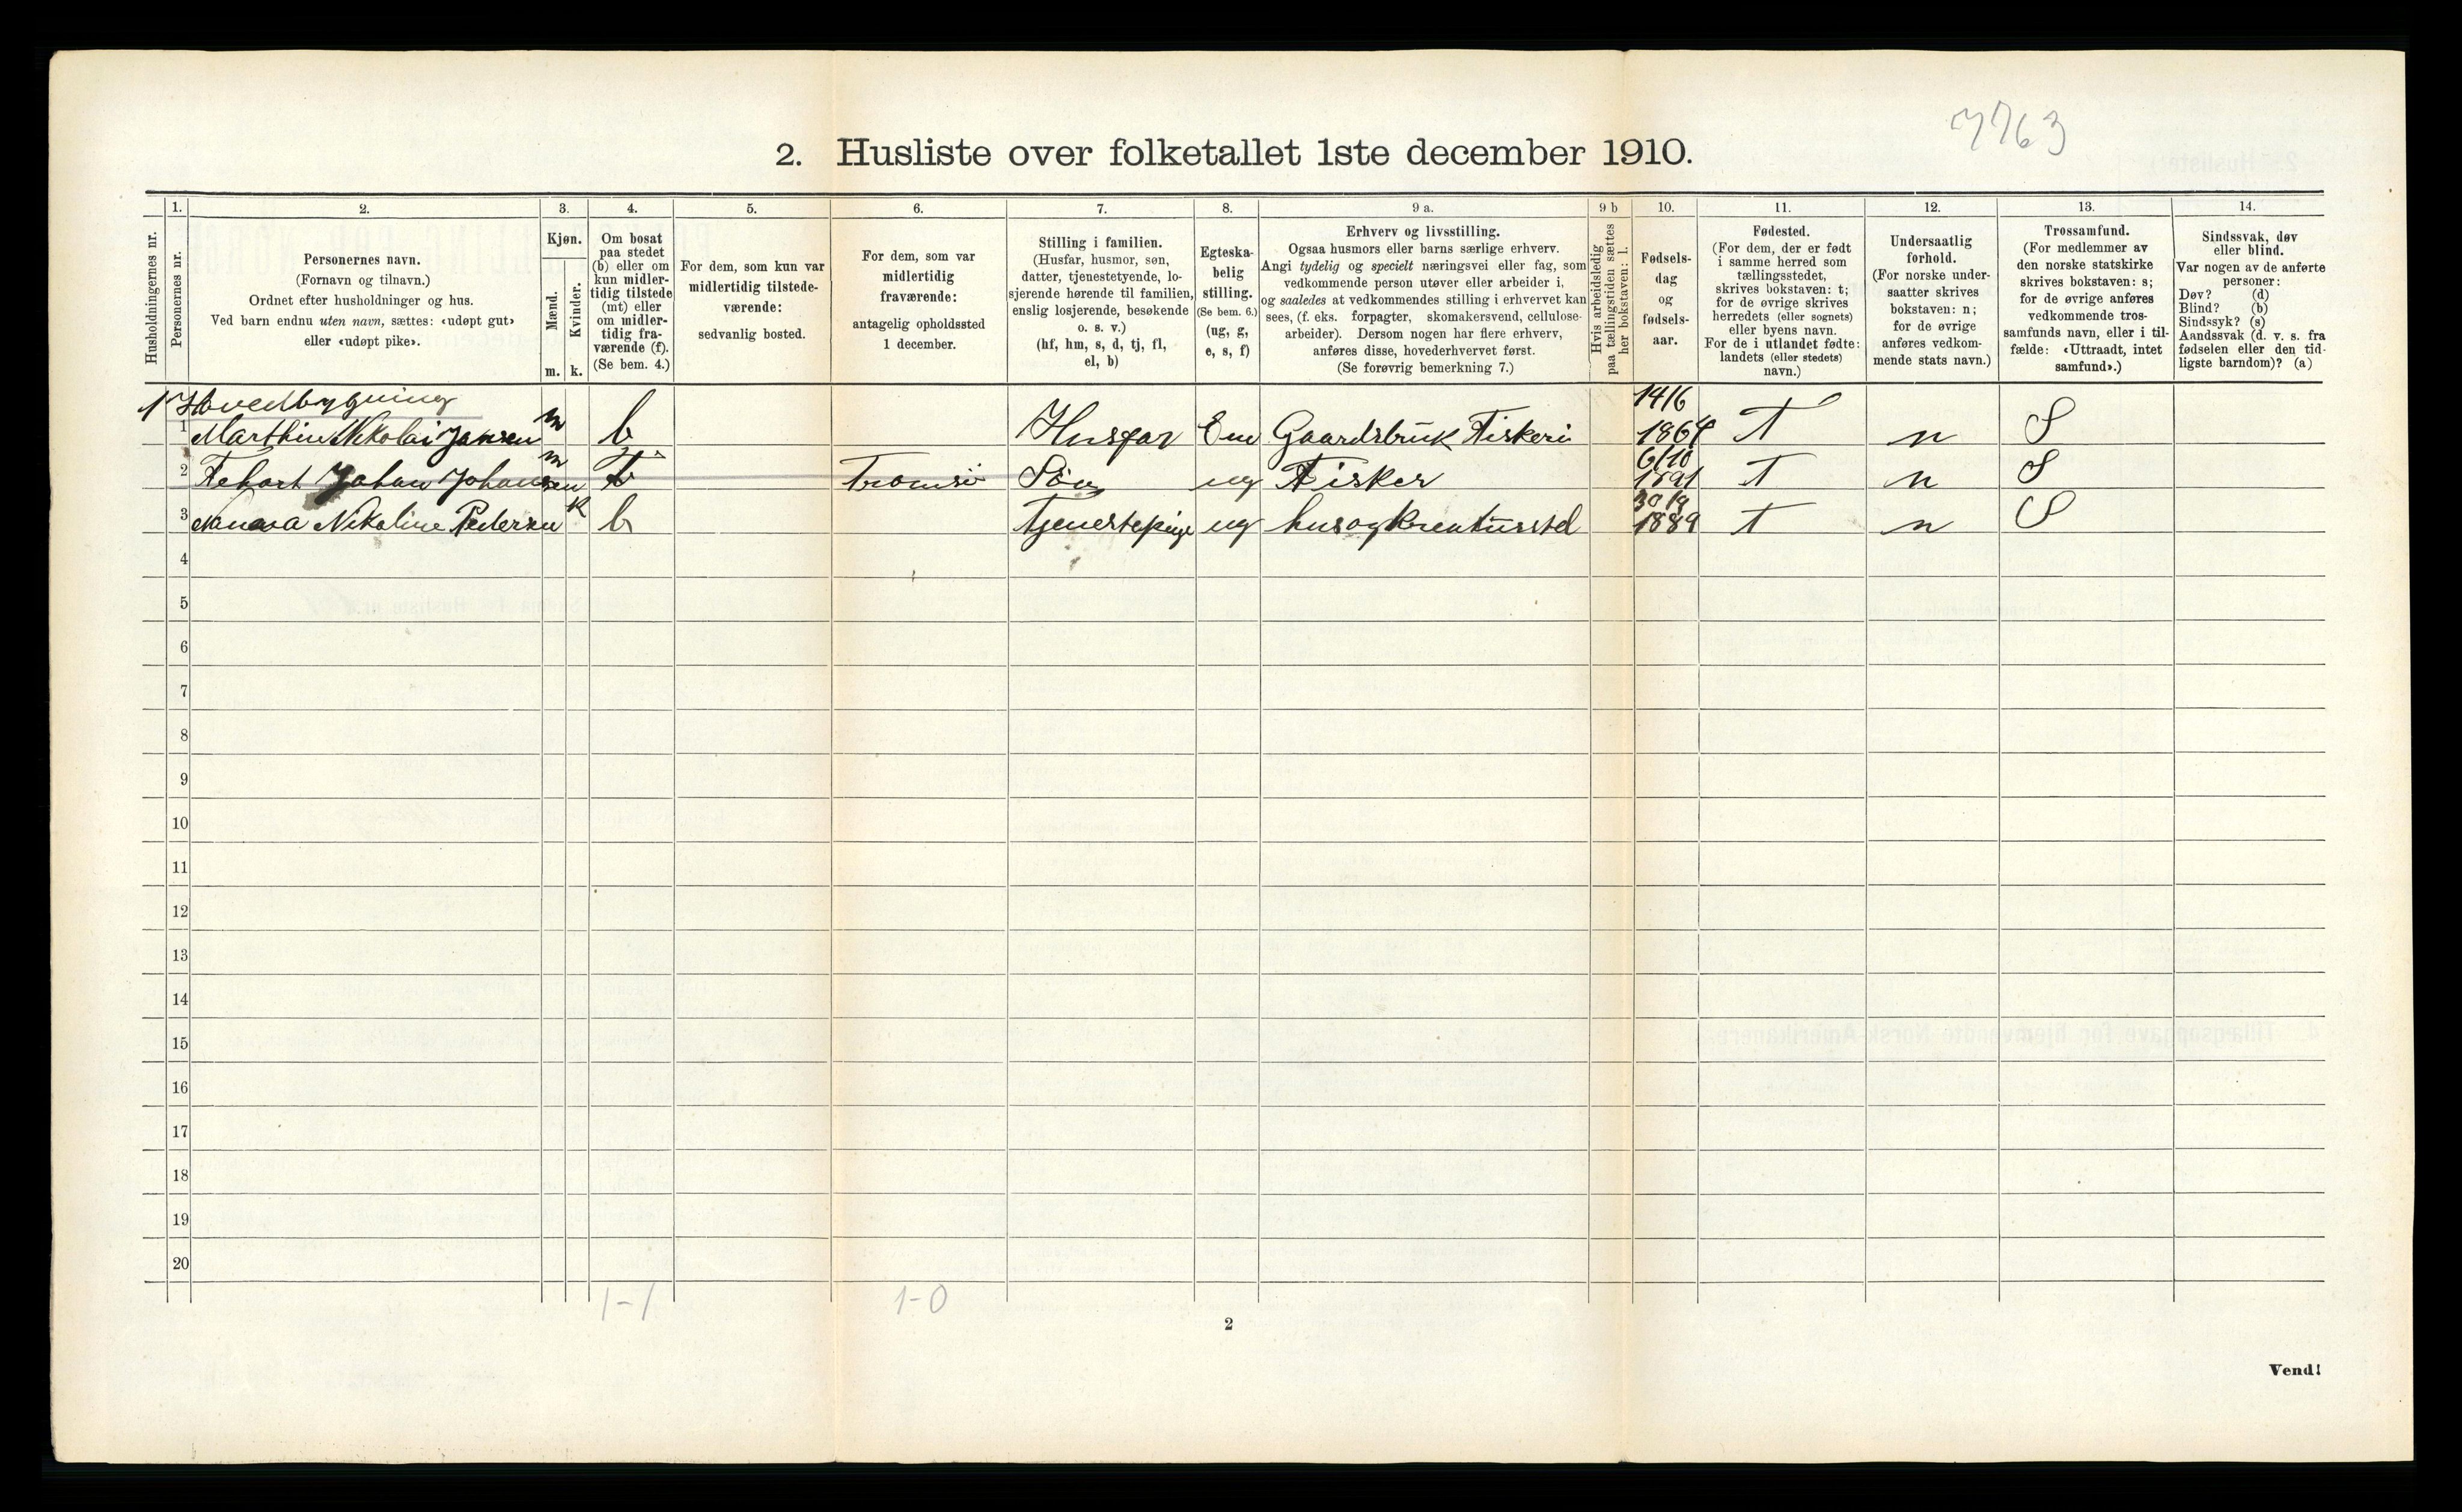 7763
2. Husliste over folketallet 1ste december 1910.
Husholdningernes nr.
1.
Personernes nr.
2.
Personernes navn.
(Fornavn og tilnavn.)
Ordnet efter husholdninger og hus.
Ved barn endnu uten navn, sættes: «udøpt gut»
eller «udøpt pike».
3.
Kjøn.
Mænd.
Kvinder.
m. k.
4.
Om bosat
paa stedet
(b) eller om
kun midler-
tidig tilstede
(mt) eller
om midler-
tidig fra-
værende (f).
(Se bem. 4.)
5.
For dem, som kun var
midlertidig tilstede-
værende:
sedvanlig bosted.
6.
For dem, som var
midlertidig
fraværende:
antagelig opholdssted
1 december.
7.
Stilling i familien.
(Husfar, husmor, søn,
datter, tjenestetyende, lo-
sjerende hørende til familien,
enslig losjerende, besøkende
o. s. v.)
(hf, hm, s, d, tj, fl,
el, b)
8.
Egteska-
belig
stilling.
(Se bem. 6.)
(ug, g,
e, s, f)
9 a.
Erhverv og livsstilling.
Ogsaa husmors eller barns særlige erhverv.
Angi tydelig og specielt næringsvei eller fag, som
vedkommende person utøver eller arbeider i,
og saaledes at vedkommendes stilling i erhvervet kan
sees, (f. eks. forpagter, skomakersvend, cellulose-
arbeider). Dersom nogen har flere erhverv,
anføres disse, hovederhvervet først.
(Se forøvrig bemerkning 7.)
9 b
Hvis arbeidsledig
paa tællingstiden sættes
her bokstaven: l.
10.
Fødsels-
dag
og
fødsels-
aar.
11.
Fødested.
(For dem, der er født
i samme herred som
tællingsstedet,
skrives bokstaven: t;
for de øvrige skrives
herredets (eller sognets)
eller byens navn.
For de i utlandet fødte:
landets (eller stedets)
navn.)
12.
Undersaatlig
forhold.
(For norske under-
saatter skrives
bokstaven: n;
for de øvrige
anføres vedkom-
mende stats navn.)
13.
Trossamfund.
(For medlemmer av
den norske statskirke
skrives bokstaven: s;
for de øvrige anføres
vedkommende tros-
samfunds navn, eller i til-
fælde: «Uttraadt, intet
samfund».)
14.
Sindssvak, døv
eller blind.
Var nogen av de anførte
personer:
Døv? (d)
Blind? (b)
Sindssyk? (s)
Aandssvak (d. v. s. fra
fødselen eller den tid-
ligste barndom)? (a)
1 Hovedbygning
1 Marthin Nikolai Jansen m b Husfar Em Gaardsbruk Fiskeri 14/6 1864 T n S
2 Johan Johansen m Tromsö Sön ug Fisker 6/10 1891 T n S
3 Nikoline Pedersen k b Tjenestepige ug hus og kreaturstel 30/9 1889 t n S
4
5
6
7
8
9
10
11
12
13
14
15
16
17
18
19
20
1-1 1-0
2
Vend!